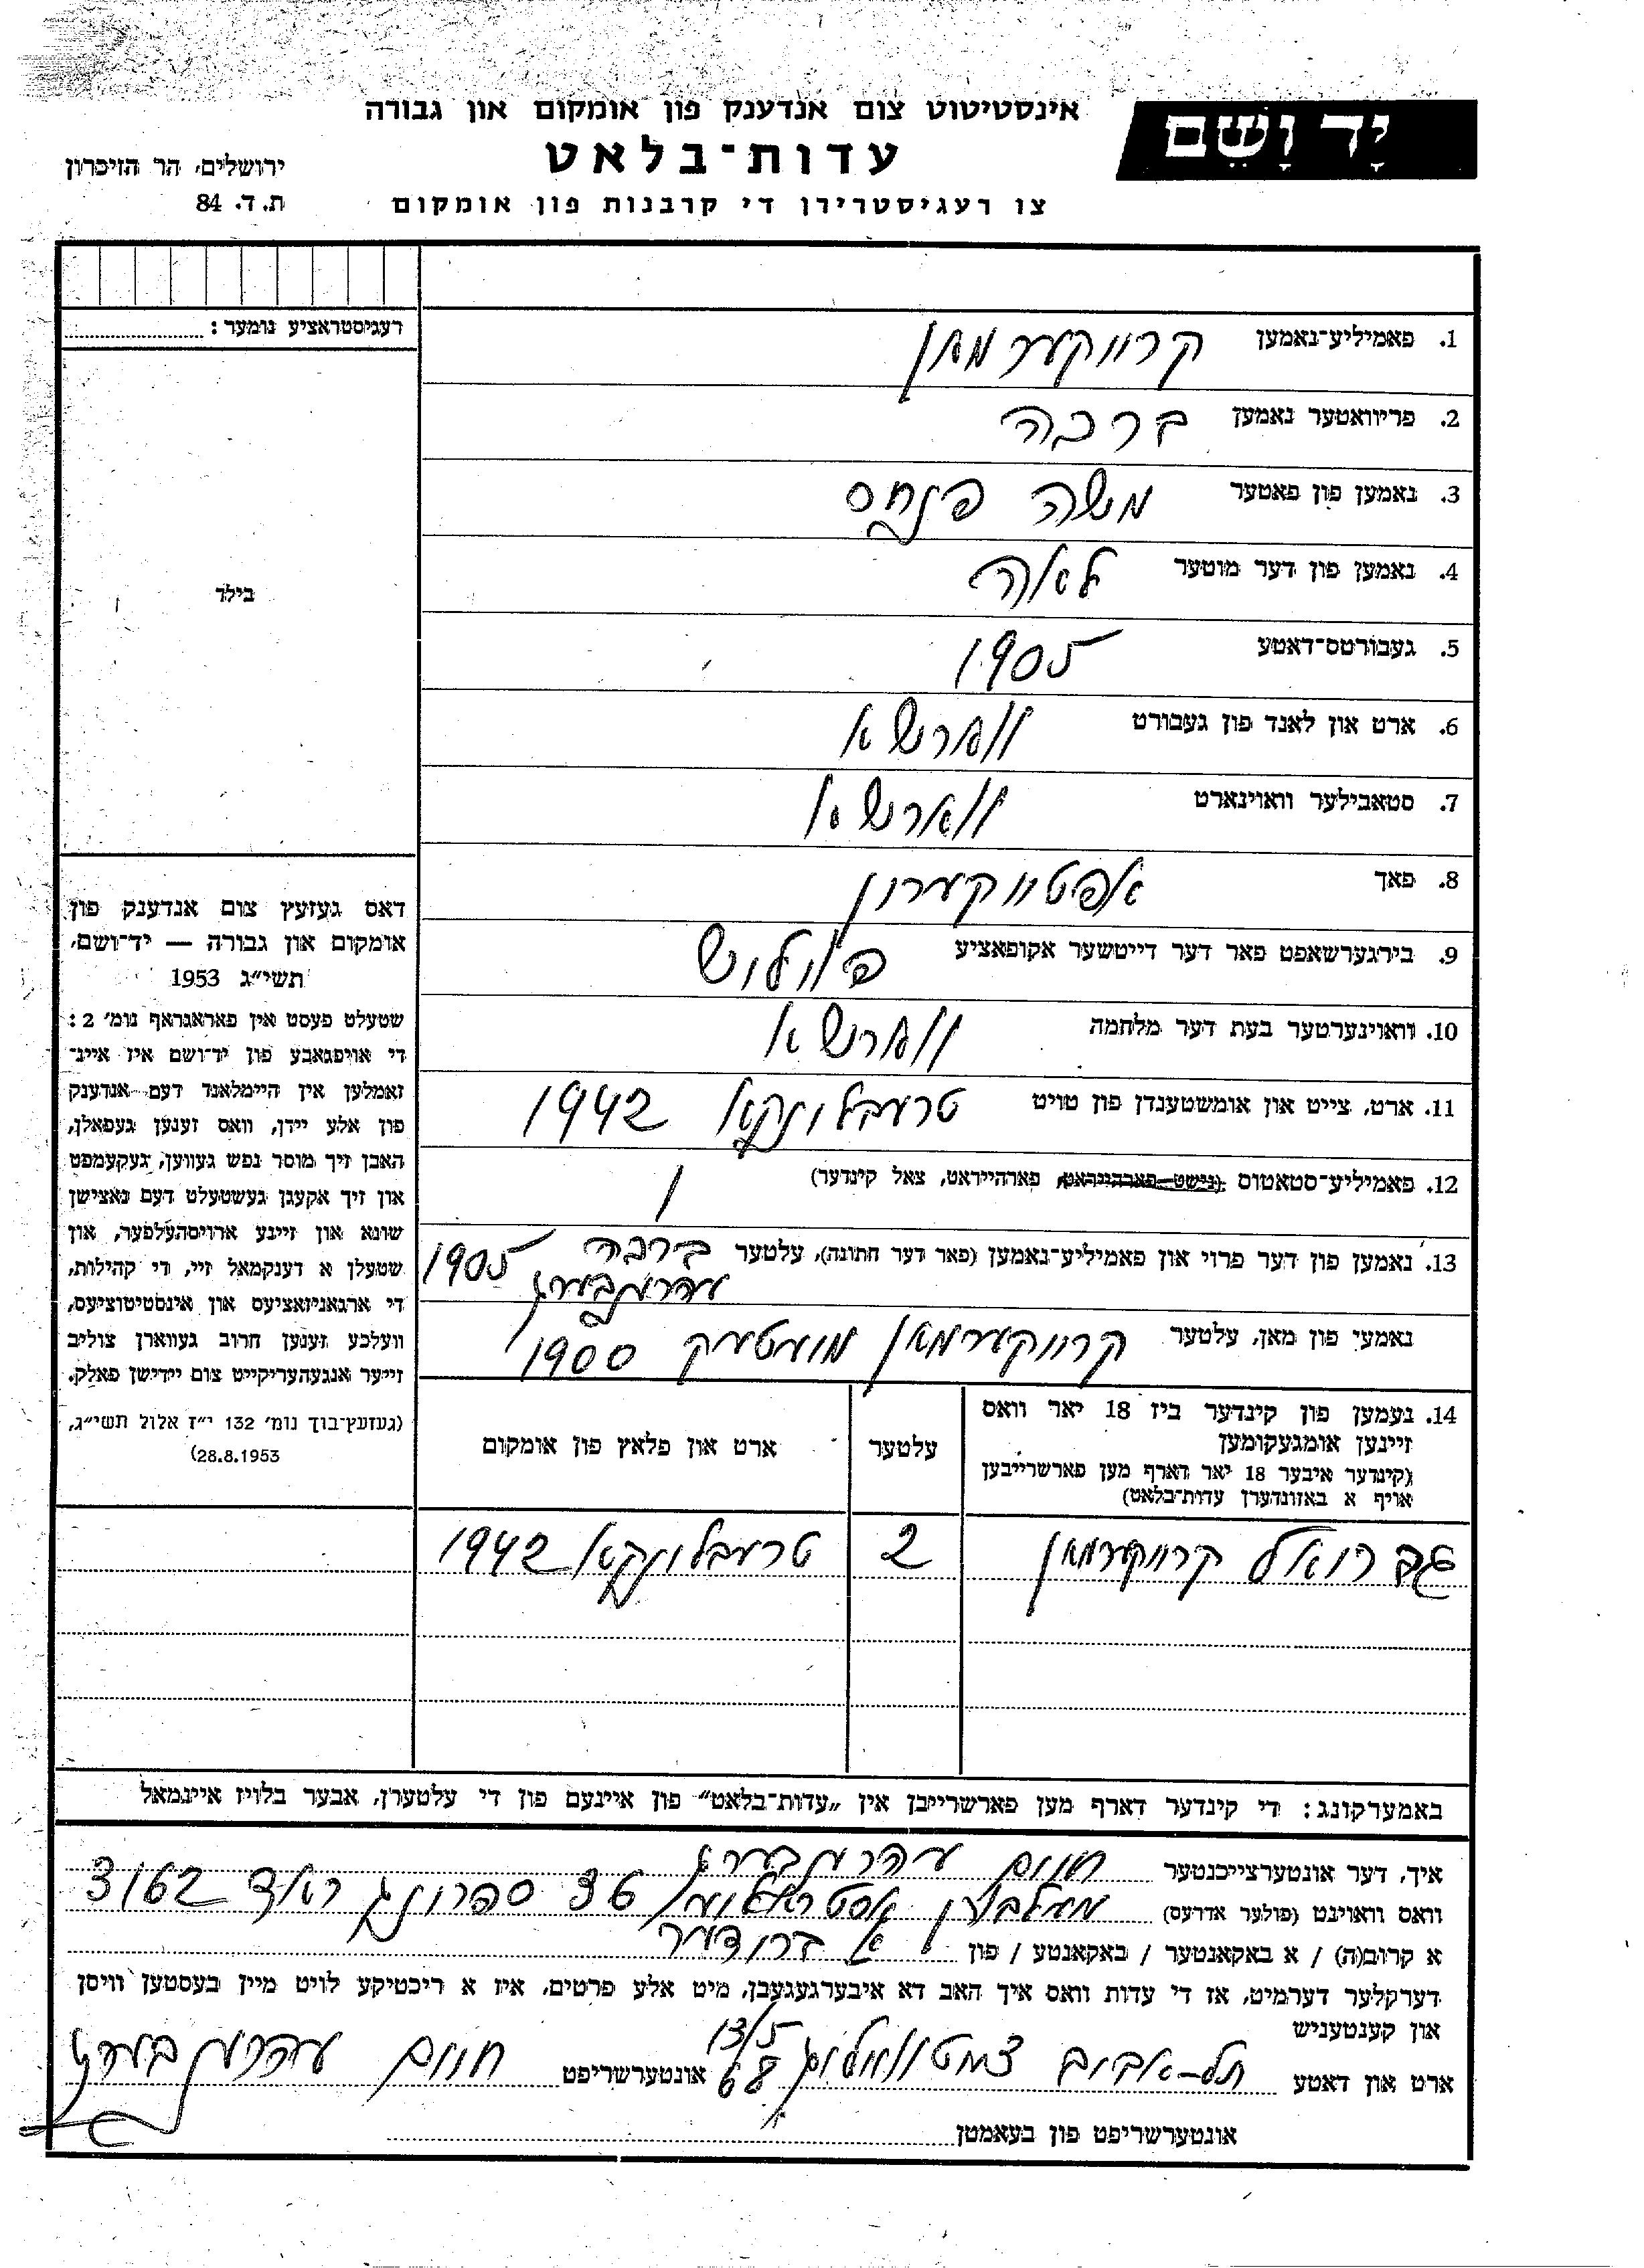 יָד וָשֵׁם
אינסטיטוט צום אנדענק פון אומקום און גבורה
עדות־בלאט
צו רעגיסטרירן די קרבנות פון אומקום
ירושלים, הר הזיכרון
ת. ד. 84
רעגיסטראציע נומער:
בילד
1. פאמיליע־נאמען קרווקערמאן
2. פריוואטער נאמען ברכה
3. נאמען פון פאטער משה פנחס
4. נאמען פון דער מוטער לאה
5. געבורטס־דאטע 1905
6. ארט און לאנד פון געבורט ווארשא
7. סטאבילער וואוינארט ווארשא
8. פאך אפטווקערון
9. בירגערשאפט פאר דער דייטשער אקופאציע פוילוש
10. וואוינערטער בעת דער מלחמה ווארשא
11. ארט, צייט און אומשטענדן פון טויט טרעבלונקא 1942
12. פאמיליע־סטאטוס (נישט־פארהייראט, פארהייראט, צאל קינדער) 1
13. נאמען פון דער פרוי און פאמיליע־נאמען (פאר דער חתונה), עלטער ברכה 1905
ערענבערג
נאמען פון מאן, עלטער קרווקערמאן מועטעק 1900
14. נעמען פון קינדער ביז 18 יאר וואס
זיינען אומגעקומען
(קינדער איבער 18 יאר דארף מען פארשרייבען
אויף א באזונדערן עדות־בלאט)
עלטער
ארט און פלאץ פון אומקום
גברואל קרווקערמאן 2 טרעבלונקא 1942
דאס געזעץ צום אנדענק פון
אומקום און גבורה — יד־ושם,
תשי״ג 1953
שטעלט פעסט אין פאראגראף נומ׳ 2:
די אויפגאבע פון יד־ושם איז איינ־
זאמלען אין היימלאנד דעם אנדענק
פון אלע יידן, וואס זענען געפאלן,
האבן זיך מוסר נפש געווען, געקעמפט
און זיך אקעגן געשטעלט דעם נאצישן
שונא און זיינע ארויסהעלפער, און
שטעלן א דענקמאל זיי, די קהילות,
די ארגאניזאציעס און אינסטיטוציעס,
וועלכע זענען חרוב געווארן צוליב
זייער אנגעהעריקייט צום יידישן פאלק.
(געזעץ־בוך נומ׳ 132 י״ז אלול תשי״ג,
28.8.1953)
באמערקונג: די קינדער דארף מען פארשרייבן אין „עדות־בלאט״ פון איינעם פון די עלטערן, אבער בלויז איינמאל
איך, דער אונטערצייכנטער חיים ערענבערג
וואס וואוינט (פולער אדרעס) מעלבורן אסטראלוע 36 ספרונג ראד 3162
א קרוב(ה) / א באקאנטער / באקאנטע / פון א ברודער
דערקלער דערמיט, אז די עדות וואס איך האב דא איבערגעגעבן, מיט אלע פרטים, איז א ריכטיקע לויט מיין בעסטען וויסן
און קענטעניש
ארט און דאטע תל-אביב 13/5 68 אונטערשריפט חיים ערענבערג
אונטערשריפט פון בעאמטן